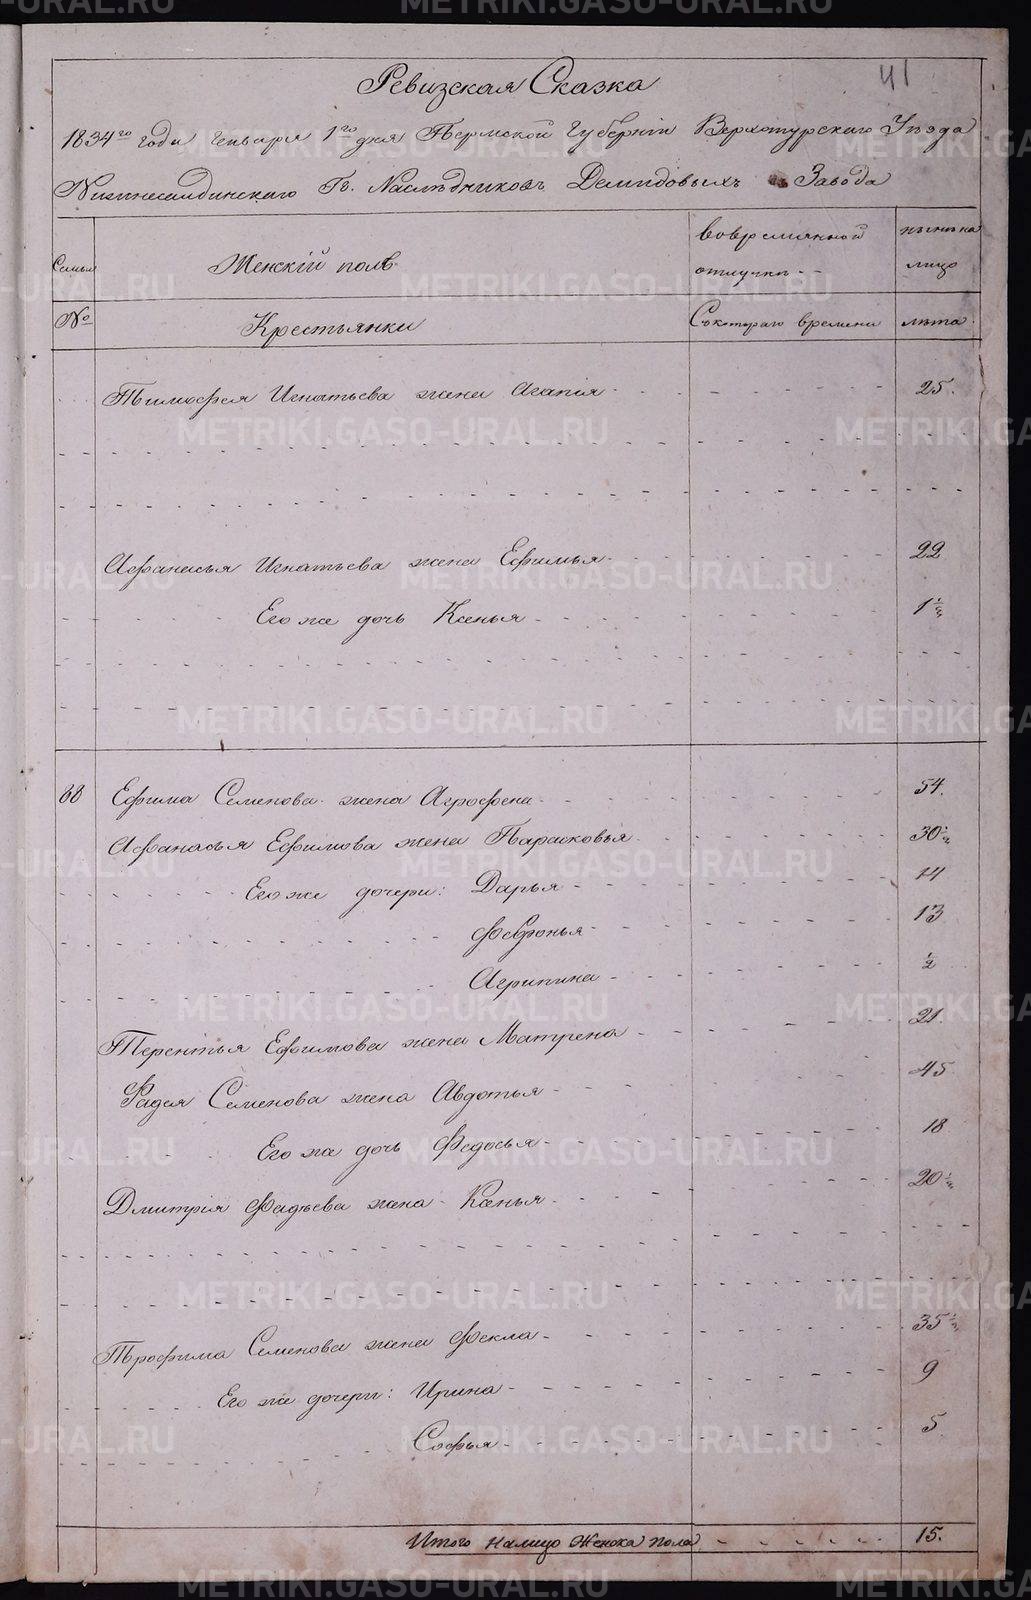 41
Ревизская Сказка
1834го года Генваря 1го дня Пермской Губернiи Верхотурскаго Уезда
Нижнесалдинскаго Гг. Наслѣдниковъ Демидовыхъ Завода
Семьи
Женскiй полъ
вовременной отлучкѣ
нынѣ на лицо
№
Крестьянки
Съкотораго времени
лѣта
Тимофея Игнатьева жена Агапiя 25.
Афанасья Игнатьева жена Ефимья 22
Его же дочь Ксенья 1 1/2
88 Ефима Семенова жена Агрофена 54.
Афанасья Ефимова жена Парасковья 30 1/2
Его же дочери: Дарья 14
Февронья 13
Агрипина 1/2
Терентья Ефимова жена Матрена 21.
Фадея Семенова жена Авдотья 45.
Его же дочь Федосья 18
Дмитрiя Фадѣева жена Ксенья 20 1/2
Трофима Семенова жена Фекла 35 1/2
Его же дочери: Ирина 9
Софья 5
Итого налицо Женска пола 15.
METRIKI.GASO-URAL.RU